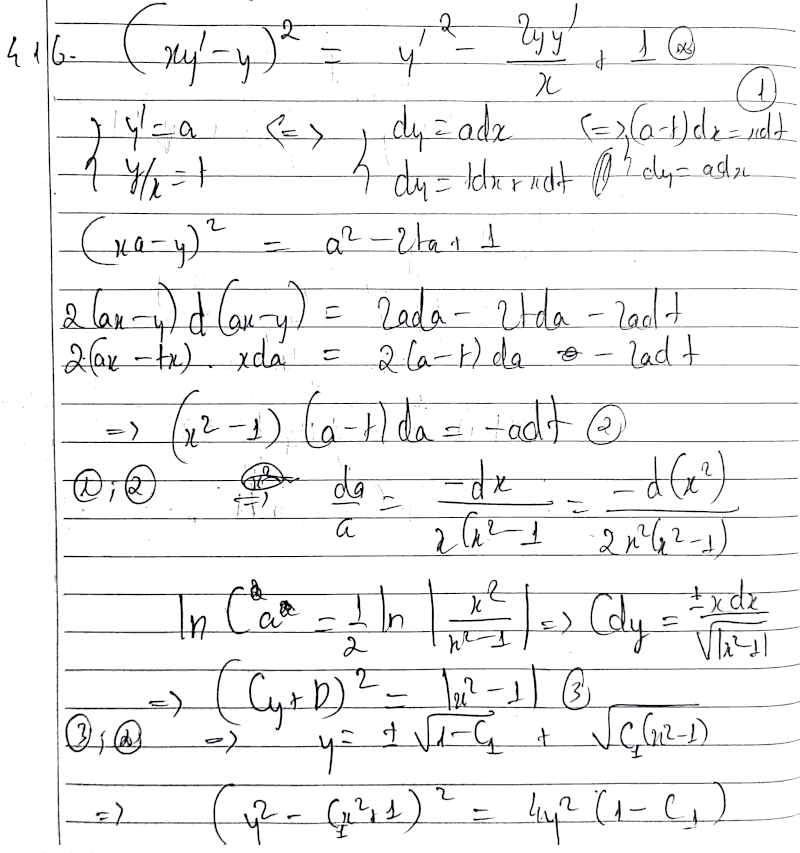 416. (xy' - y)² = y'² - 2yy'/x + 1 ⊗
①
{ y' = a <=> { dy = adx <=> { (a-t)dx = xdt
{ y/x = t { dy = tdx + xdt { dy = adx
(xa - y)² = a² - 2ta + 1
2(ax - y) d(ax - y) = 2ada - 2tda - 2adt
2(ax - tx) . xda = 2(a - t) da - 2adt
=> (x² - 1) (a - t) da = -adt ②
①; ② => da/a = -dx/x(x² - 1 = -d(x²)/2x²(x² - 1)
ln Ca = 1/2 ln |x²/x²-1| => Cdy = ± xdx/√|x²-1|
=> (Cy + D)² = |x² - 1| ③
③; ⊗ => y = ± √1-C₁ + √C₁(x²-1)
=> (y² - C₁x² + 1)² = 4y² (1 - C₁)